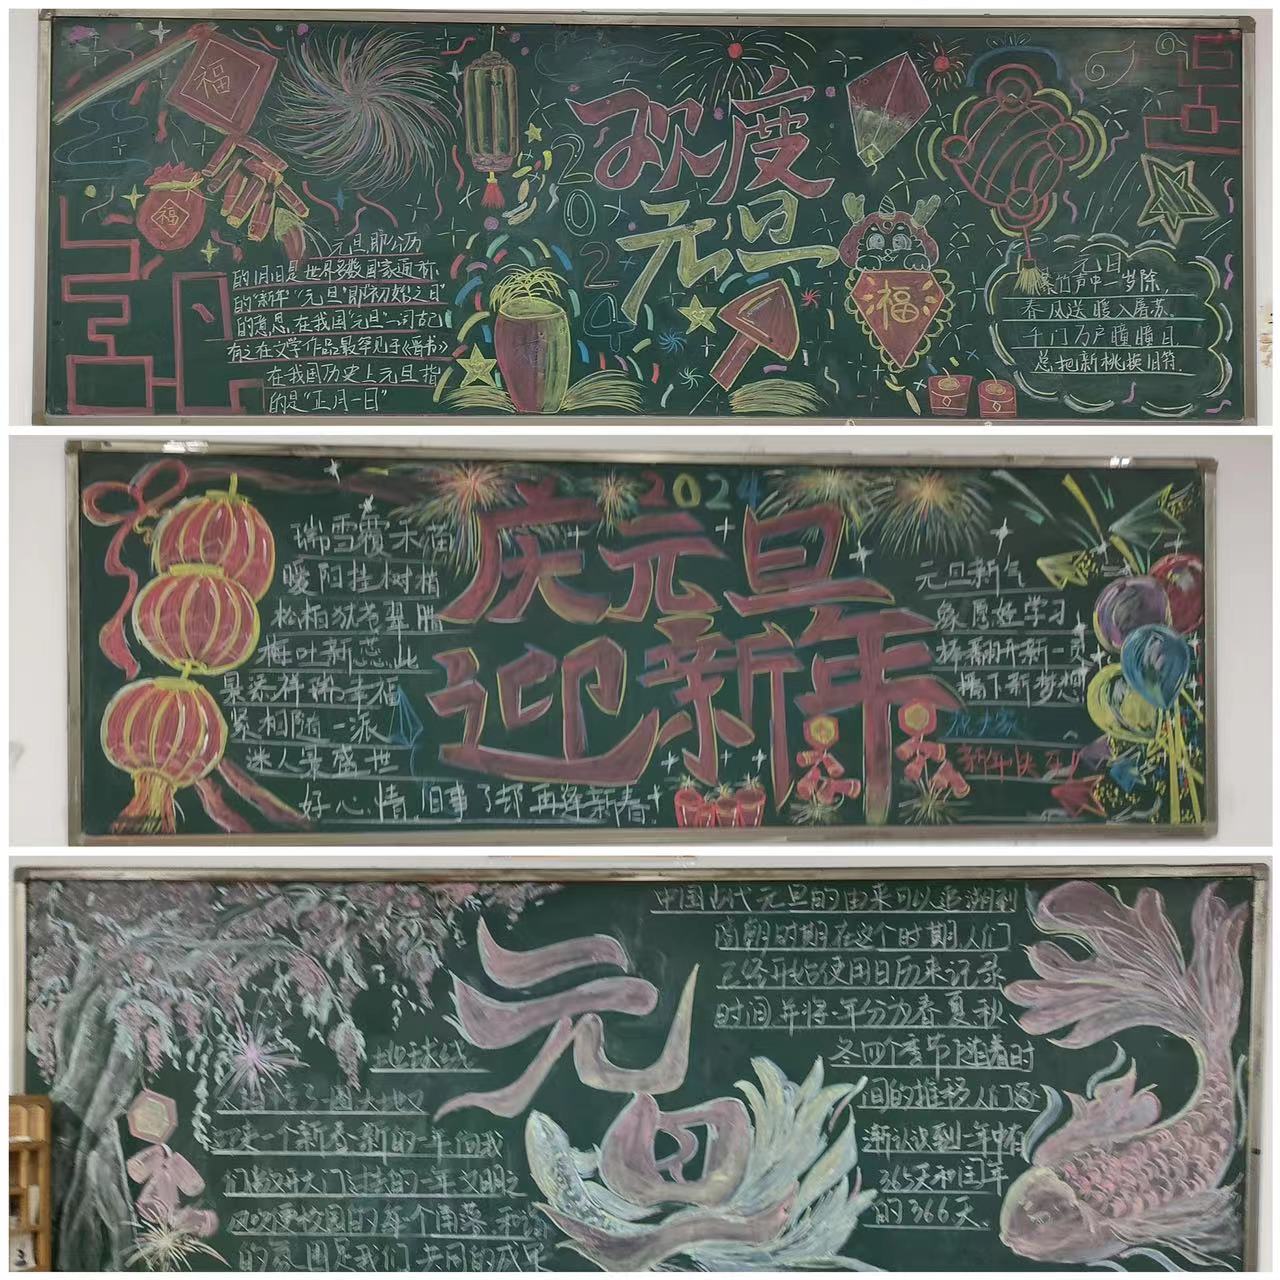 福
福
欢度
元旦
2024
福
元旦,即公历
的1月1日是世界多数国家通称
的“新年”“元旦”即“初始之日”
的意思,在我国“元旦”一词古已
有之在文学作品最早见于《晋书》
在我国历史上元旦指
的是“正月一日”
元旦
爆竹声中一岁除,
春风送暖入屠苏。
千门万户曈曈日,
总把新桃换旧符.
2024
庆元旦
迎新年
瑞雪覆禾苗
暖阳挂树梢
松柏犹着翠
梅吐新蕊,此
景添祥瑞幸福
紧相随一派
迷人景盛世
好心情,旧事了却再逢新春
元旦新气
象愿好学习
翻开新一页
播下新梦想
祝大家
新年快乐!
元旦
中国古代元旦的由来可以追溯到
南朝时期在这个时期,人们
已经开始使用日历来记录
时间,并将一年分为春夏秋、
冬四个季节随着时
间的推移人们逐
渐认识到一年中有
365天和闰年
的366天.
地球绕
大地又
迎来一个新春新的一年向我
们敞开大门过去的一年文明之
校园的每个角落和谐
的氛围是我们共同的成果